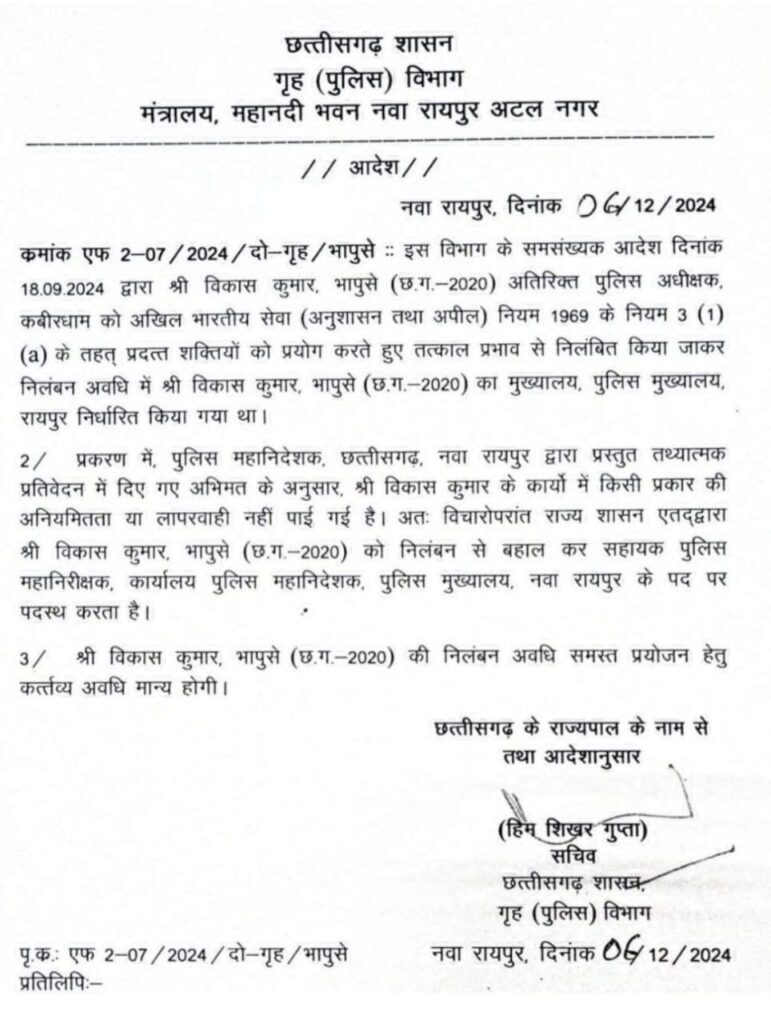 छत्तीसगढ़ शासन
गृह (पुलिस) विभाग
मंत्रालय, महानदी भवन नवा रायपुर अटल नगर
// आदेश //
नवा रायपुर, दिनांक 06/12/2024
कमांक एफ 2-07/2024/दो-गृह/भापुसे :: इस विभाग के समसंख्यक आदेश दिनांक
18.09.2024 द्वारा श्री विकास कुमार, भापुसे (छ.ग.-2020) अतिरिक्त पुलिस अधीक्षक,
कबीरधाम को अखिल भारतीय सेवा (अनुशासन तथा अपील) नियम 1969 के नियम 3 (1)
(a) के तहत् प्रदत्त शक्तियों को प्रयोग करते हुए तत्काल प्रभाव से निलंबित किया जाकर
निलंबन अवधि में श्री विकास कुमार, भापुसे (छ.ग.-2020) का मुख्यालय, पुलिस मुख्यालय,
रायपुर निर्धारित किया गया था।
2/ प्रकरण में, पुलिस महानिदेशक, छत्तीसगढ़, नवा रायपुर द्वारा प्रस्तुत तथ्यात्मक
प्रतिवेदन में दिए गए अभिमत के अनुसार, श्री विकास कुमार के कार्यो में किसी प्रकार की
अनियमितता या लापरवाही नहीं पाई गई है। अतः विचारोपरांत राज्य शासन एतद्द्वारा
श्री विकास कुमार, भापुसे (छ.ग.-2020) को निलंबन से बहाल कर सहायक पुलिस
महानिरीक्षक, कार्यालय पुलिस महानिदेशक, पुलिस मुख्यालय, नवा रायपुर के पद पर
पदस्थ करता है।
3/ श्री विकास कुमार, भापुसे (छ.ग.-2020) की निलंबन अवधि समस्त प्रयोजन हेतु
कर्त्तव्य अवधि मान्य होगी।
छत्तीसगढ़ के राज्यपाल के नाम से
तथा आदेशानुसार
(हिम शिखर गुप्ता)
सचिव
छत्तीसगढ़ शासन,
गृह (पुलिस) विभाग
पृ.क.: एफ 2-07/2024/दो-गृह/भापुसे नवा रायपुर, दिनांक 06/12/2024
प्रतिलिपिः-